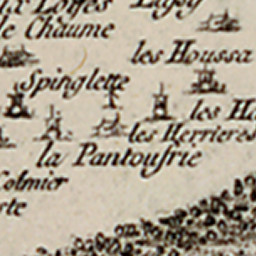 le Chaume
les Houssa
Spinglette
les H
les Herrieres
la Pantoufrie
Colmier